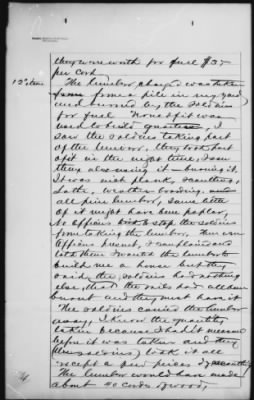 they were worth for fuel $3
per Cord
12th Item The lumber charged was taken
from a pile in my yard
and burned by the soldiers
for fuel. None of it was
used to build quarters, I
saw the soldiers taking part
of the lumber. they took part
of it in the night time, I saw
them also carrying it – burning it.
It was inch plank, scantling,
Laths, weather boarding,
all pine lumber, some little
of it might have been poplar,
No officers tried to stop the soldiers
from taking the lumber. There were
officers present, I complained and
told them I wanted the lumber to
build me a house but they
said the soldiers had nothing
else, that the rails had all been
burnt and they must have it
The soldiers carried the lumber
away, I know the quantity
taken because I had it measured
before it was taken and they
(the soldiers) took it all
except a few pieces of scantling
The lumber would have made
about 40 cords of wood,